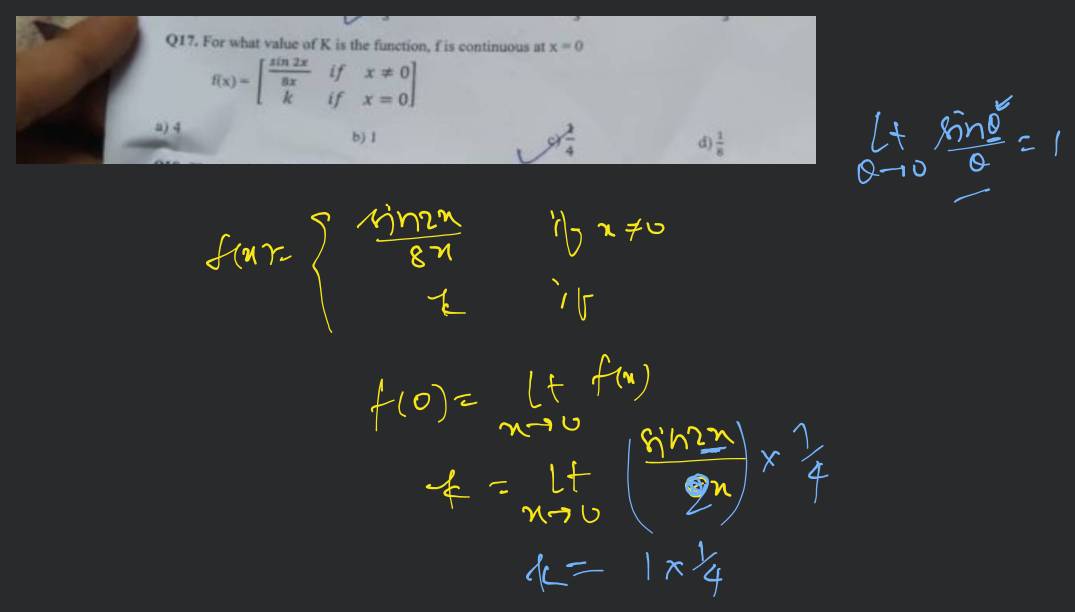 Q17. For what value of K is the function, f is continuous at x = 0
f(x) = [ sin 2x / 8x if x ≠ 0
k if x = 0 ]
a) 4 b) 1 c) 1/4 d) 1/8
Lt θ→0 sinθ/θ = 1
f(x) = { sin2x / 8x if x ≠ 0
k if
f(0) = Lt x→0 f(x)
k = Lt x→0 ( sin2x / 2x ) × 1/4
k = 1 × 1/4